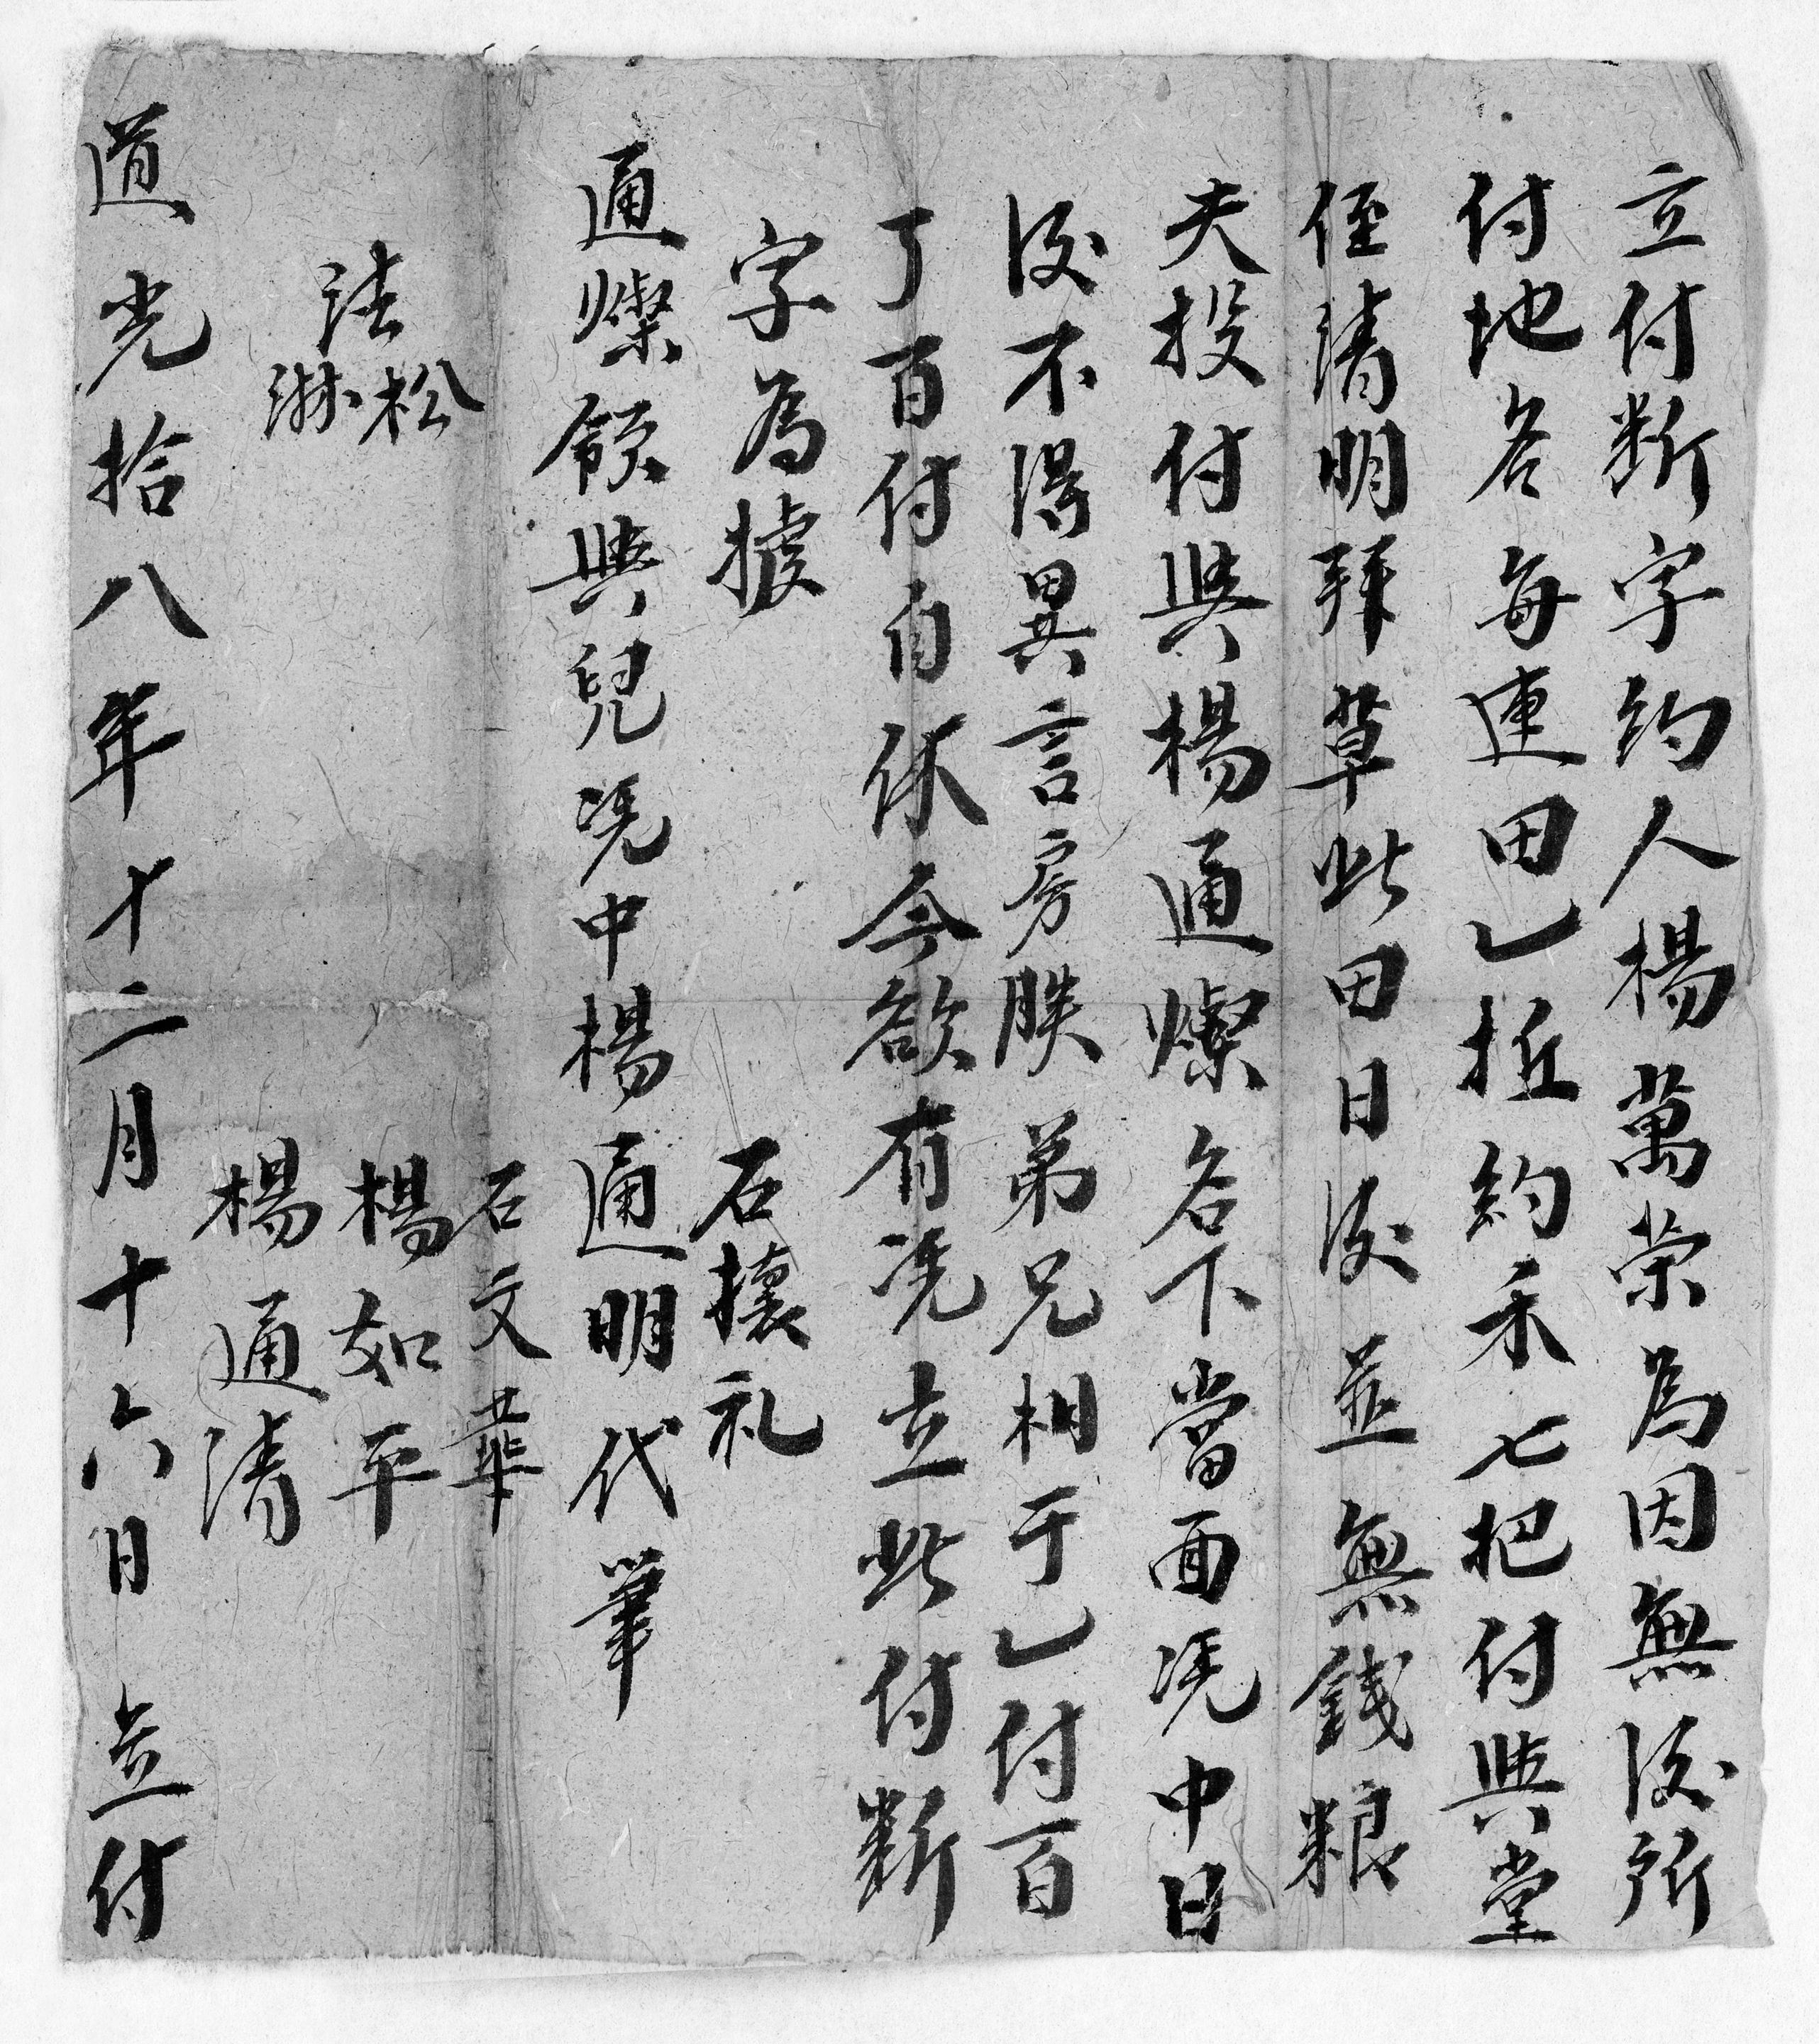 立付断字約人楊萬荣為因無後所
付地名每連田乚坵約禾七把付與堂
侄清明拜草此田日後並無錢粮
夫投付與楊通燦名下當面凭中日
後不得異言房腠弟兄相干乚付百
了百付自休今欲有凭立此付断
字為據
石攘礼
通燦領與兒凭中楊通明代筆
石文華
法松
淋
楊如平
楊通清
道光拾八年十二月十六日 立付